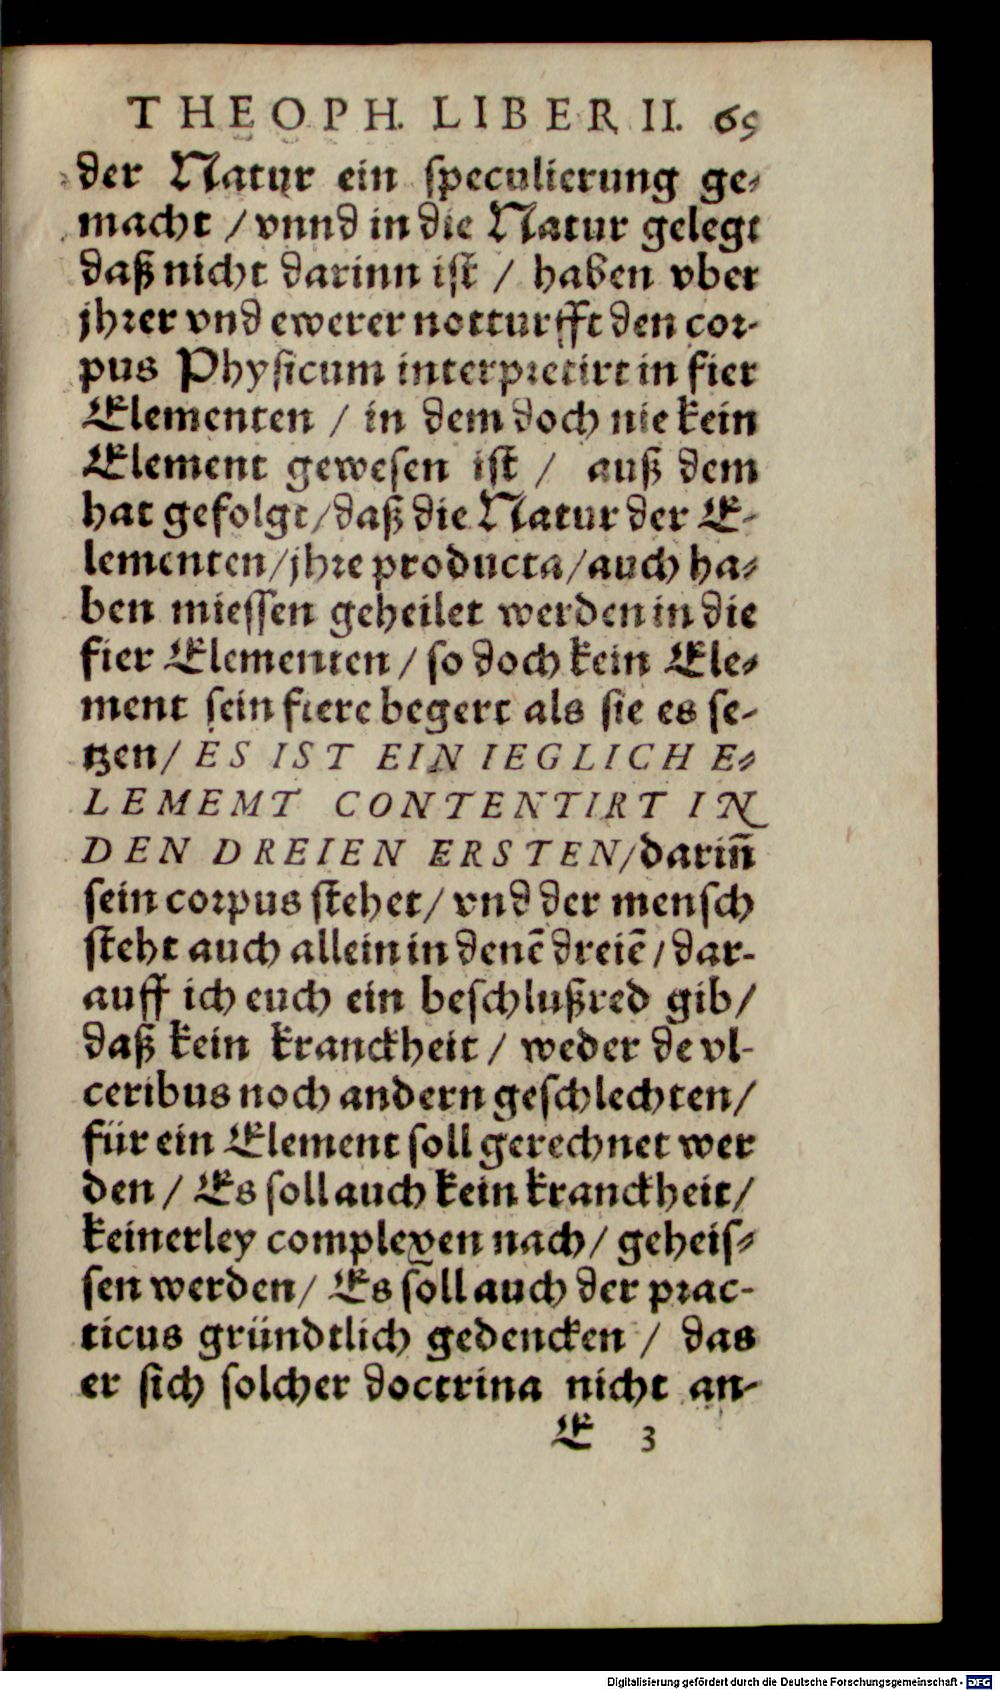 THEOPH. LIBER II. 69
der Natur ein speculierung ge⸗
macht / vnnd in die Natur gelegt
daß nicht darinn ist / haben vber
jhrer vnd ewerer notturfft den cor-
pus Physicum interpretirt in fier
Elementen / in dem doch nie kein
Element gewesen ist / auß dem
hat gefolgt / daß die Natur der E-
lementen / jhre producta / auch ha⸗
ben miessen geheilet werden in die
fier Elementen / so doch kein Ele⸗
ment sein fiere begert als sie es se-
tzen / ES IST EIN IEGLICH E⸗
LEMEMT CONTENTIRT IN
DEN DREIEN ERSTEN / darin̄
sein corpus stehet / vnd der mensch
steht auch allein in denē dreiē / dar-
auff ich euch ein beschlußred gib /
daß kein kranckheit / weder de vl-
ceribus noch andern geschlechten /
für ein Element soll gerechnet wer
den / Es soll auch kein kranckheit /
keinerley complexen nach / geheis⸗
sen werden / Es soll auch der prac-
ticus gründtlich gedencken / das
er sich solcher doctrina nicht an-
E 3
Digitalisierung gefördert durch die Deutsche Forschungsgemeinschaft - DFG